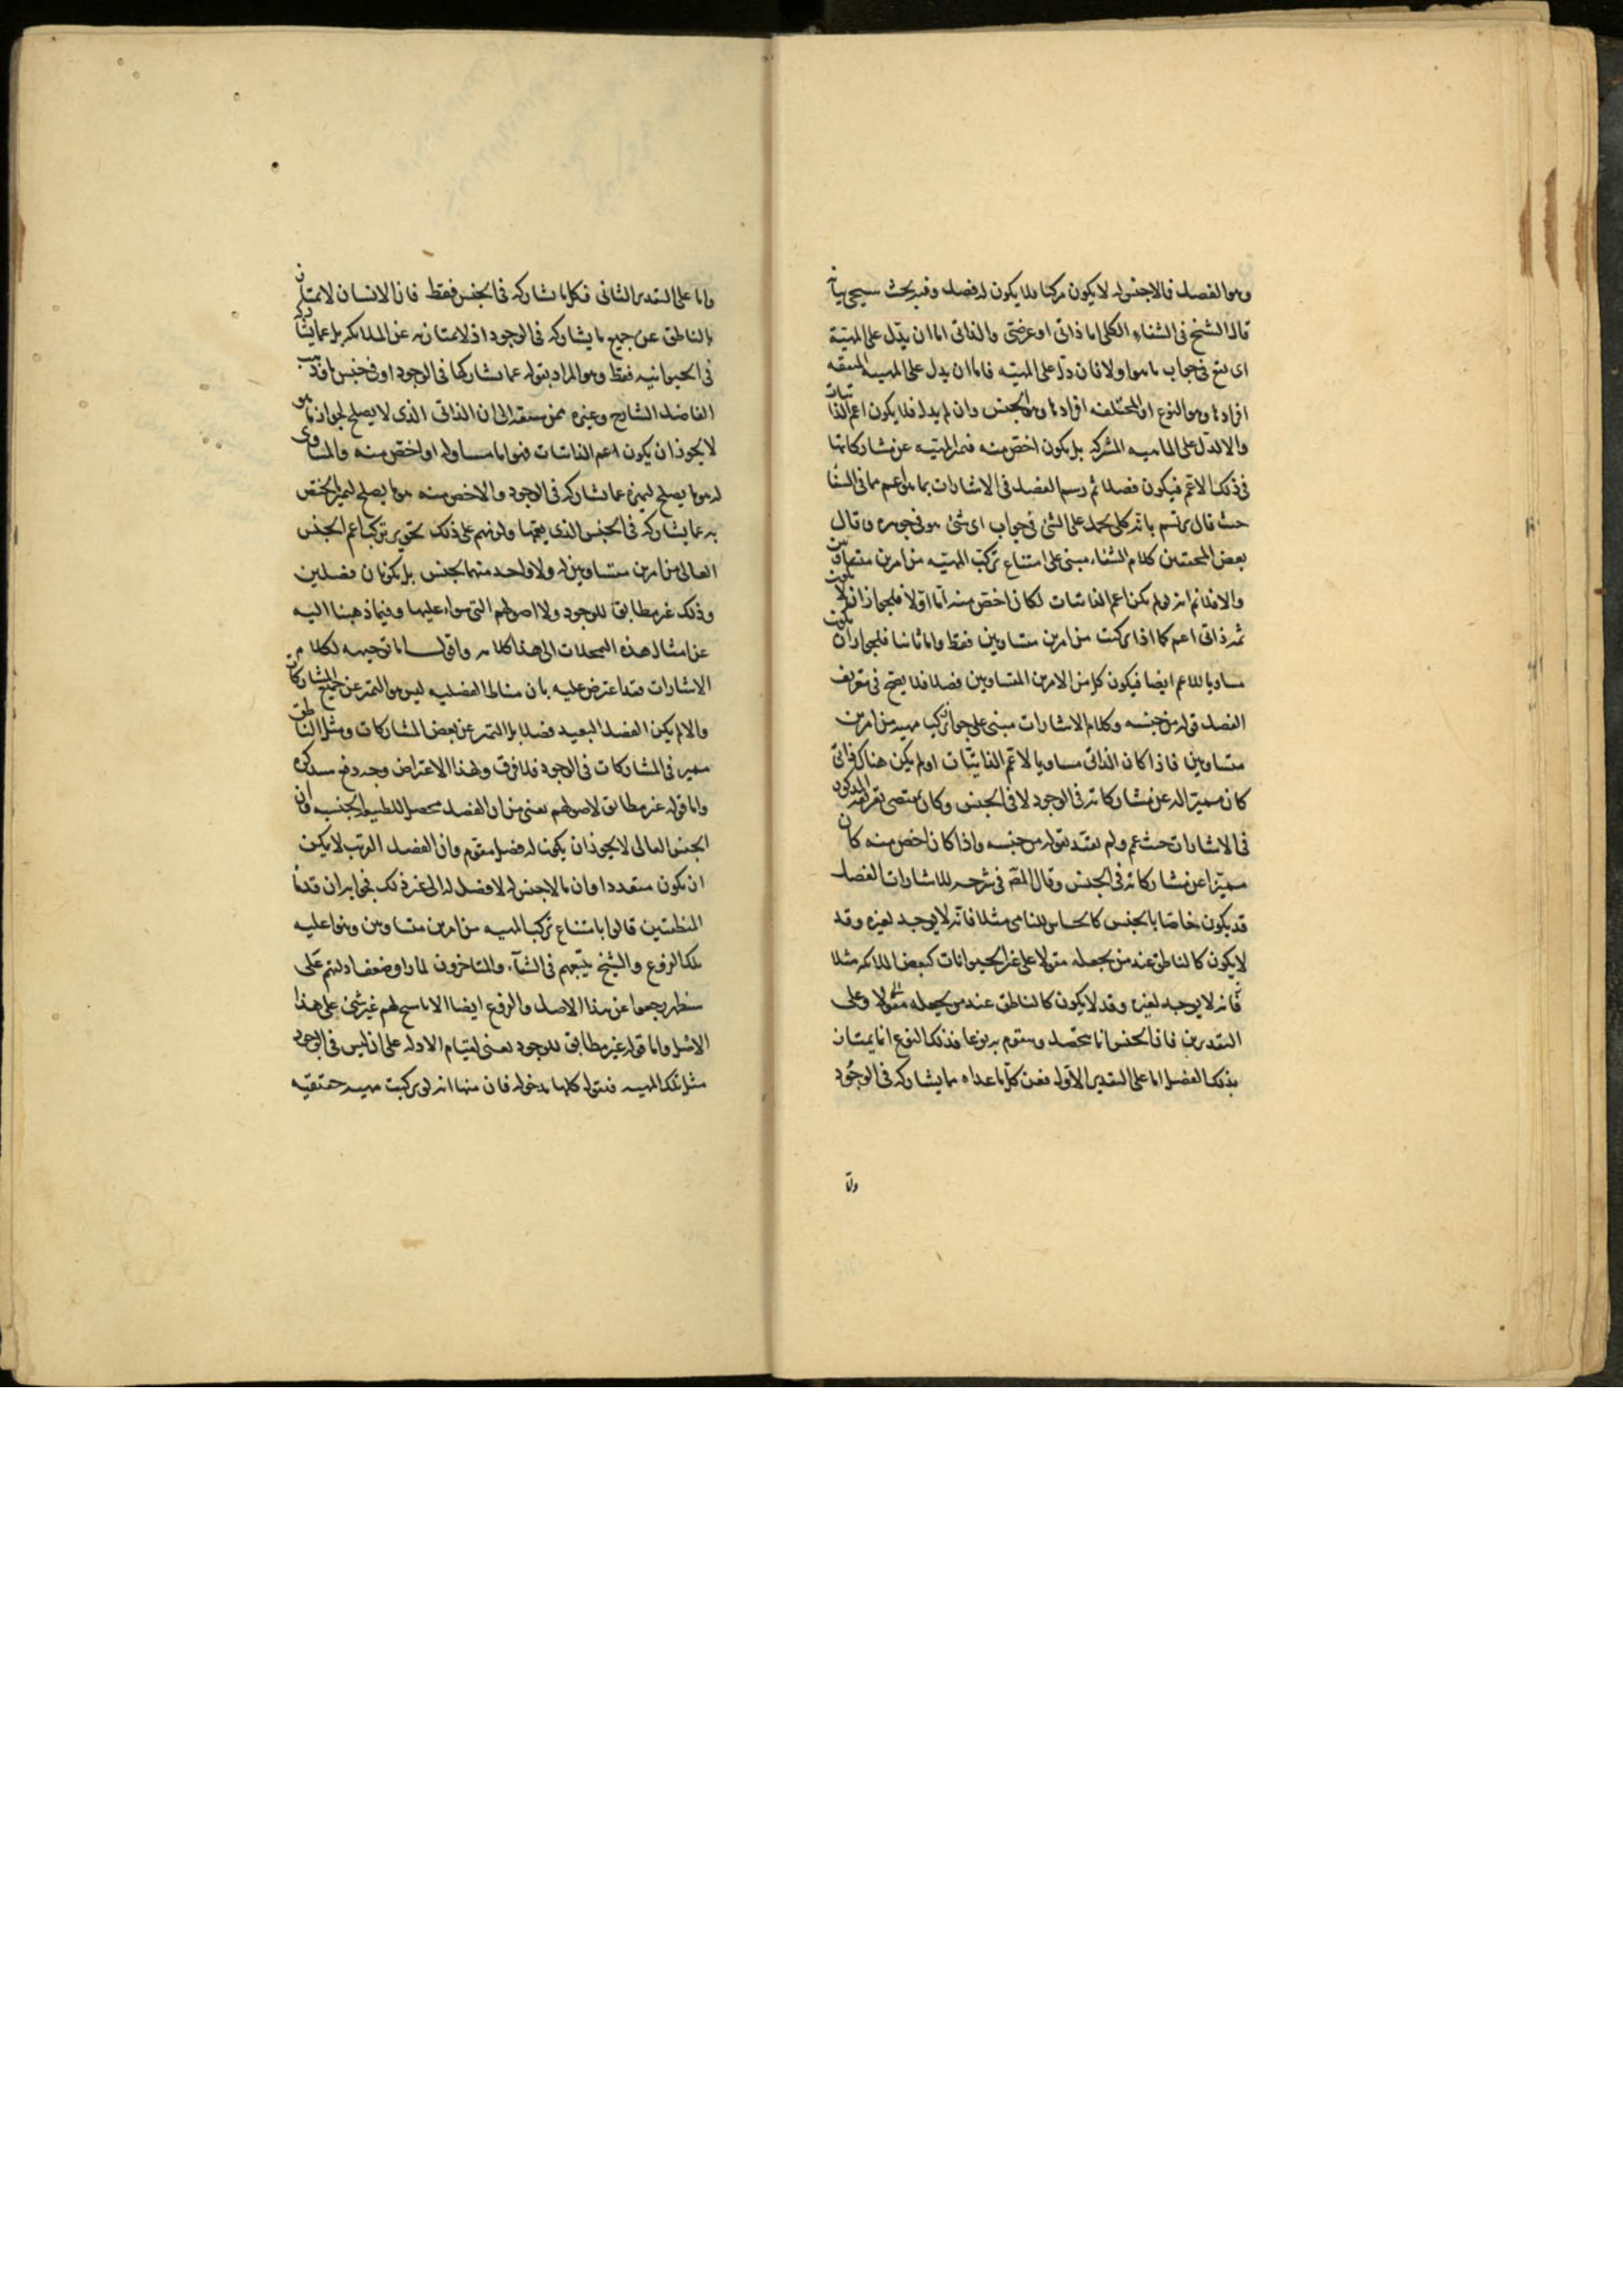 وهو الفصل فما لا جنس له لا يكون مركبا فلا يكون له فصل وفيه بحث سيجئ بيانه
قال الشيخ فى الشفاء الكلى اما ذاتى او عرضى والذاتى اما ان يدل على المهية
اى يقع فى جواب ما هو اولا فان دل على المهية فاما ان يدل على المهية المتفقة
افرادها وهو النوع او المختلفة افرادها وهو الجنس وان لم يدل فلا يكون اعم الذاتيات
والا لدل على الماهية المشتركة بل يكون اخص منه فيميز المهية عن مشاركاتها
فى ذلك الاعم فيكون فصلا ثم رسم الفصل فى الاشارات بما هو اعم مما فى الشفا
حيث قال يرتسم بانه كلى يحمل على الشئ فى جواب اى شئ هو فى جوهره وقال
بعض المحققين كلام الشفاء مبنى على امتناع تركب المهية من امرين متساويين
والا فلا نم انه لو لم يكن اعم الذاتيات لكان اخص منه اما اولا فلجواز ان لا يكون
ثمه ذاتى اعم كما اذا تركبت من امرين متساويين فقط واما ثانيا فلجواز ان يكون
مساويا للاعم ايضا فيكون كل من الامرين المتساويين فصلا فلا يصح فى تعريف
الفصل قوله من جنسه وكلام الاشارات مبنى على جواز تركب مهية من امرين
متساويين فاذا كان الذاتى مساويا لاعم الذاتيات او لم يكن هناك ذاتى
كان مميزا له عن مشاركاته فى الوجود لا فى الجنس وكان بمقتضى تعريفه المذكور
فى الاشارات حيث عم ولم يقيد بقوله من جنسه واذا كان اخص منه كان
مميزا عن مشاركاته فى الجنس وقال المص فى شرحه للاشارات الفصل
قد يكون خاصا بالجنس كالحساس للنامى مثلا فانه لا يوجد لغيره وقد
لا يكون كالناطق عند من يجعله مقولا على غير الحيوانات كبعض الملائكة مثلا
فانه لا يوجد لغيره وقد لا يكون كالناطق عند من يجعله مقولا وعلى
التقديرين فان الجنس انما يتحصل ويتقوم به نوعا فذلك النوع انما يمتاز
بذلك الفصل اما على التقدير الاول فعن كل ما عداه مما يشاركه فى الوجود
واما
واما على التقدير الثانى فكل ما شاركه فى الجنس فقط فان الانسان لا يمتاز
بالناطق عن جميع ما يشاركه فى الوجود اذ لا يمتاز به عن الملائكة بل عما يشاركه
فى الحيوانية فقط وهو المراد بقوله عما يشاركها فى الوجود او فى جنس ما وذهب
الفاضل الشارح وغيره ممن سبقه الى ان الذاتى الذى لا يصلح لجواب ما هو
لا يجوز ان يكون اعم الذاتيات فهو اما مساو له او اخص منه والمساوى
له هو ما يصلح لتميزه عما يشاركه فى الوجود والاخص منه هو ما يصلح لتميز المختص
به عما يشاركه فى الجنس الذى يعمها ولزمهم على ذلك تجويز تركب اعم الجنس
العالى من امرين متساويين له ولا واحد منهما بجنس بل يكونان فصلين
وذلك غير مطابق للوجود ولا اصولهم التى بنوا عليها وفيما ذهبنا اليه
عن امثال هذه التمحلات الى هذا كلامه واقول اما توجيهه لكلام
الاشارات فقد اعترض عليه بان مناط الفصلية ليس هو التميز عن جميع المشاركات
والا لم يكن الفصل البعيد فصلا بل التميز عن بعض المشاركات ومثل الناطق
مميز فى المشاركات فى الوجود فلا فرق ولهذا الاعتراض وجه دفع سنذكره
واما قوله غير مطابق لاصولهم يعنى من ان الفصل محصل للطبيعة الجنسية وان
الجنس العالى لا يجوز ان يكون له فصل مقوم وان الفصل القريب لا يمكن
ان يكون متعددا وان ما لا جنس له لا فصل له الى غير ذلك فجوابه ان قدماء
المنطقيين قالوا بامتناع تركب المهية من امرين متساويين وبنوا عليه
تلك الفروع والشيخ يتبعهم فى الشفاء والمتاخرون لما راوا ضعف ادلتهم على
رجعوا عن هذا الاصل والفروع ايضا
الاصل واما قوله غير مطابق للوجود يعنى لقيام الادلة على ان ليس فى الوجود
مثل تلك المهية فنقول كلها مدخولة فان منها انه لو تركبت مهية حقيقية